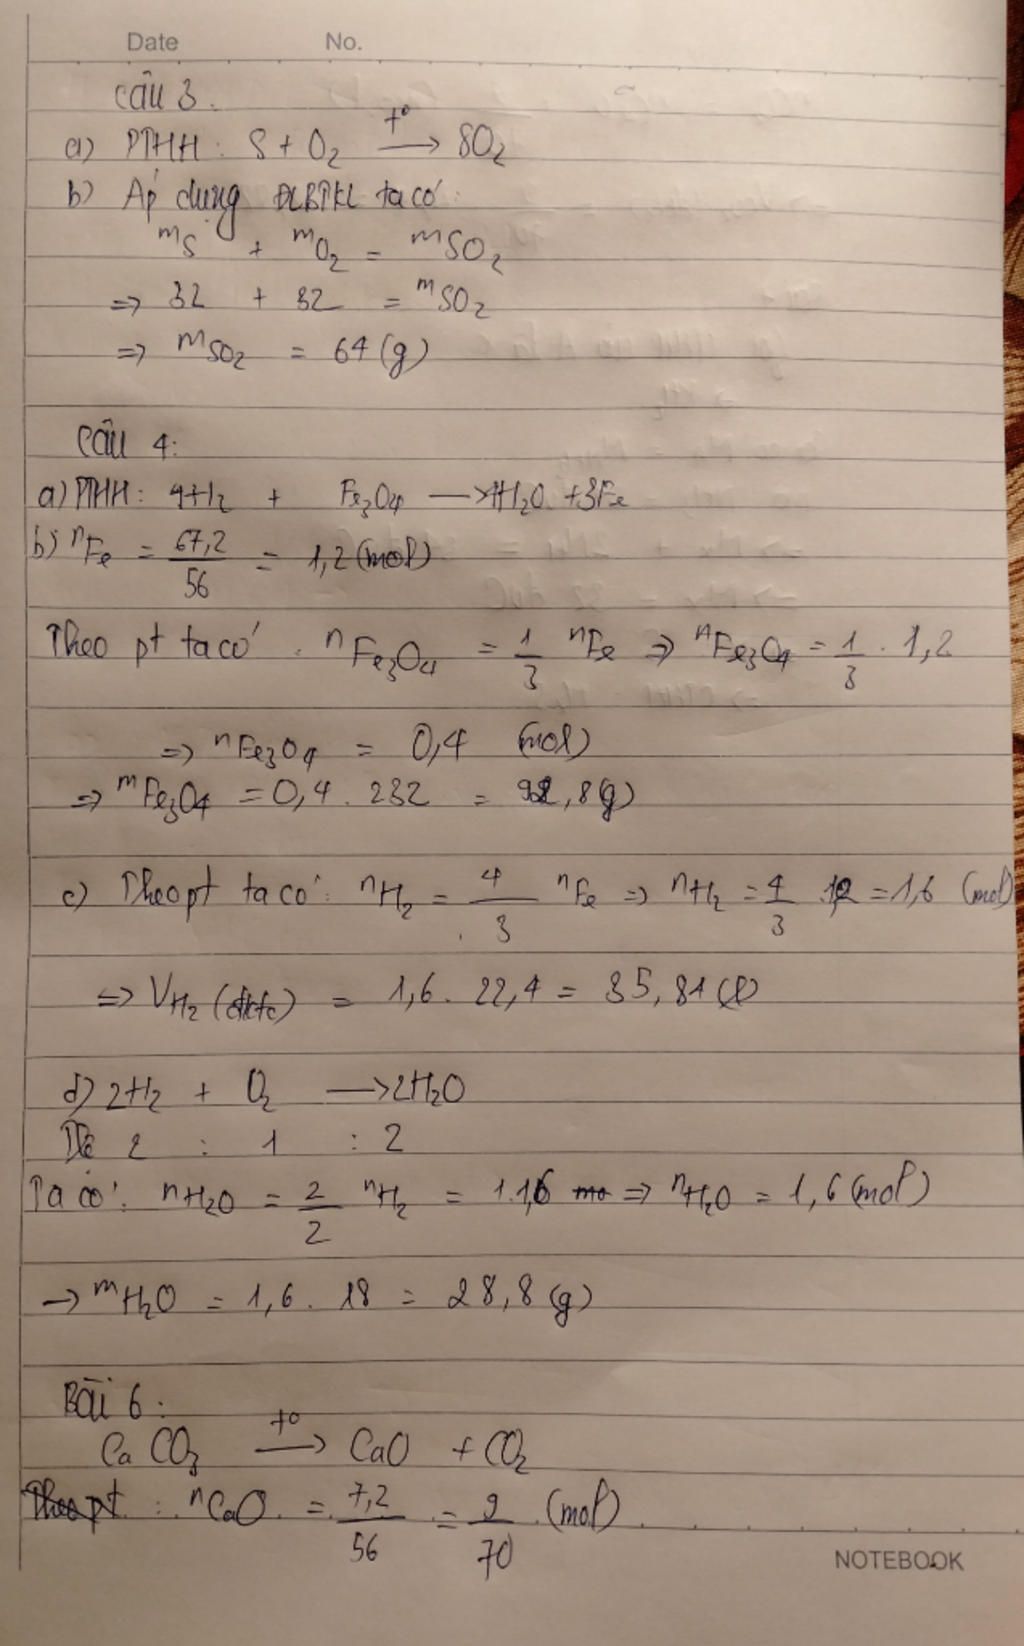 Date No.
Câu 3.
a) PTHH: S + O₂ →(t°) SO₂
b) Áp dụng ĐLBTKL ta có:
mS + mO₂ = mSO₂
=> 32 + 32 = mSO₂
=> mSO₂ = 64 (g)
Câu 4:
a) PTHH: 4H₂ + Fe₃O₄ → 4H₂O + 3Fe
b) nFe = 67,2/56 = 1,2 (mol)
Theo pt ta có: nFe₃O₄ = 1/3 nFe => nFe₃O₄ = 1/3 . 1,2
=> nFe₃O₄ = 0,4 (mol)
=> mFe₃O₄ = 0,4 . 232 = 92,8 (g)
c) Theo pt ta có: nH₂ = 4/3 nFe => nH₂ = 4/3 . 1,2 = 1,6 (mol)
=> VH₂ (đktc) = 1,6 . 22,4 = 35,84 (l)
d) 2H₂ + O₂ → 2H₂O
2 : 1 : 2
Ta có: nH₂O = 2/2 nH₂ = 1.1,6 => nH₂O = 1,6 (mol)
→ mH₂O = 1,6 . 18 = 28,8 (g)
Bài 6:
CaCO₃ →(t°) CaO + CO₂
Theo pt : nCaO = 7,2/56 = 9/70 (mol)
NOTEBOOK